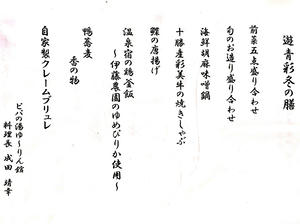 遊青彩冬の膳
前菜五点盛り合わせ
旬のお造り盛り合わせ
海鮮胡麻味噌鍋
十勝産彩美牛の焼きしゃぶ
鰈の唐揚げ
温泉宿の鶏釜飯
～伊藤農園のゆめぴりか使用～
鴨蕎麦
香の物
自家製クレームブリュレ
ビバの湯ゆ～りん館
料理長 成田 靖幸